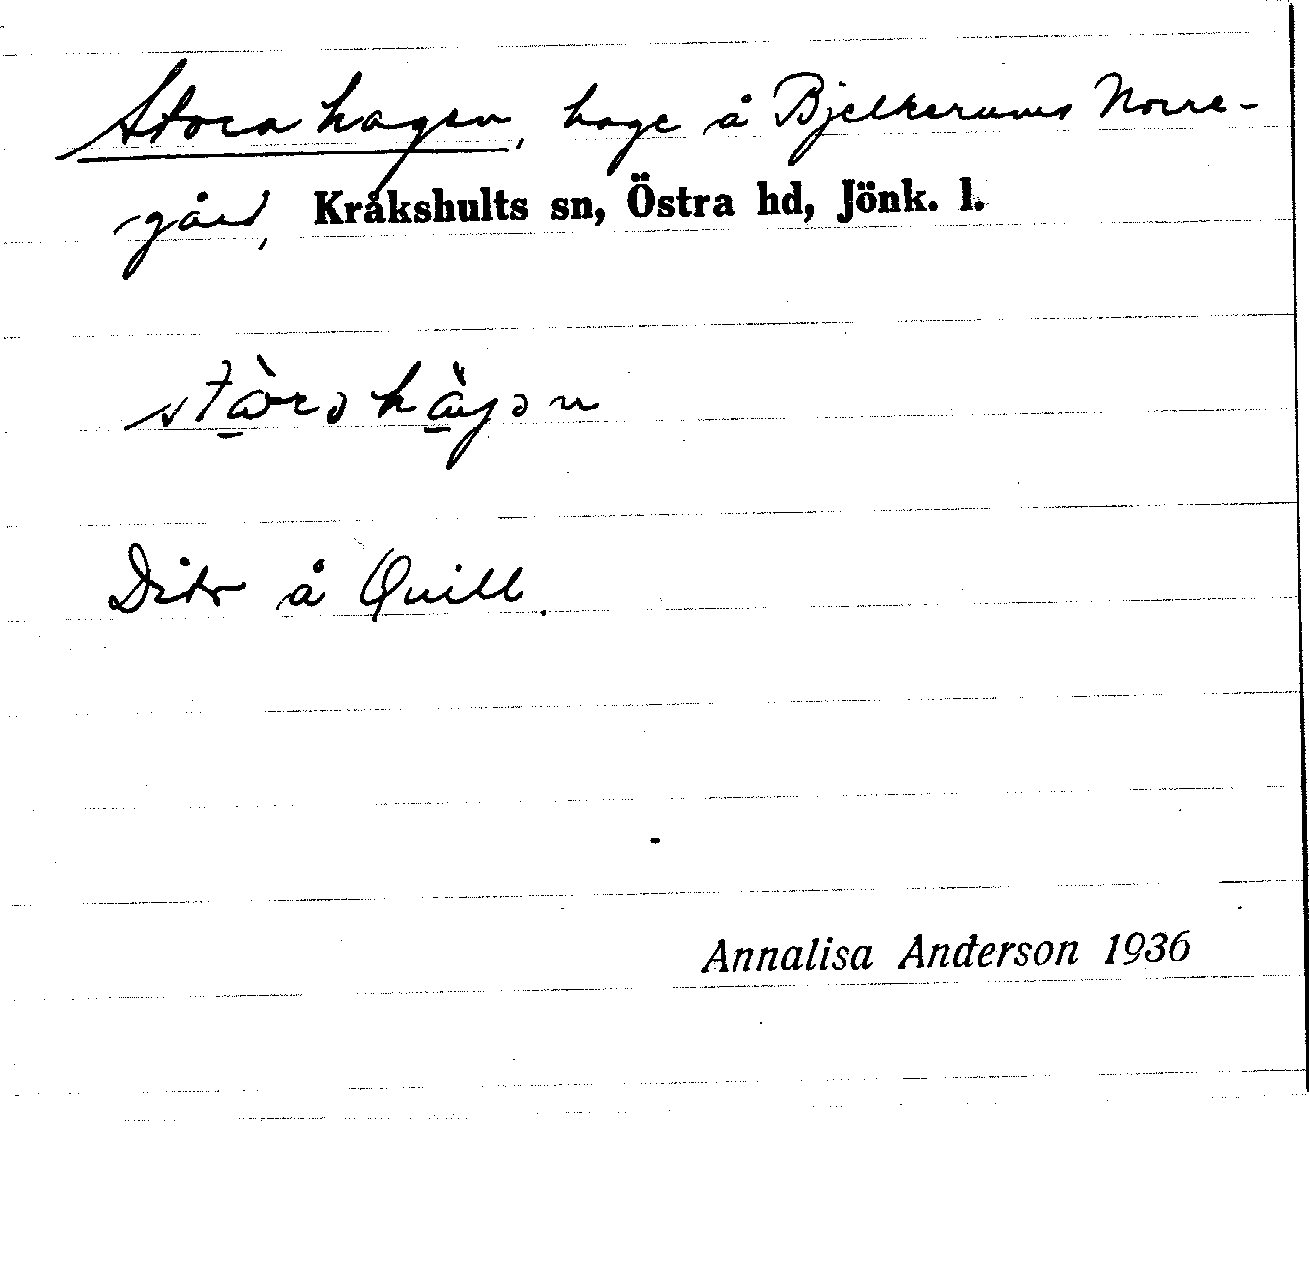 Stora hagen, hage å Bjelkerums Norre-
gård, Kråkshults sn, Östra hd, Jönk. l.
stòrə hàgən
Dito å Quill.
Annalisa Anderson 1936